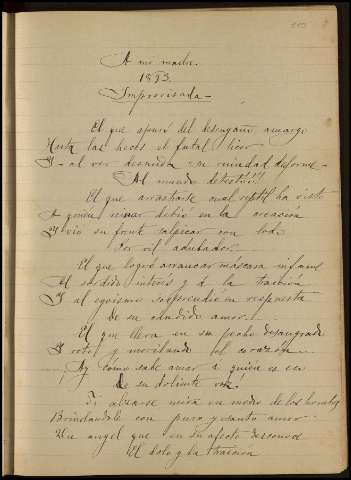 A mi madre.
1893.
Improvisada—
El que apuró del desengaño amargo
Hasta las heces el fatal licor
Y al ver desnuda su ruindad deforme
Al mundo detestó!!
El que arrastrarse cual reptil ha visto
A quien reinar debió en la creación
Y vió su frente salpicar con lodo
Por vil adulador:
El que logró arrancar máscara infame
Al sórdido interés y á la traición
Y al egoismo sorprendió en respuesta
De su cándido amor!
El que lleva en su pecho desangrado
Y roto y vacilando el corazón
Ay cómo sabe amar á quien es eco
De su doliente voz!
Si alzarse mira en medio de los
Brindándole con puro y santo amor
Un angel que en su afecto desconoce
El dolo y la traición